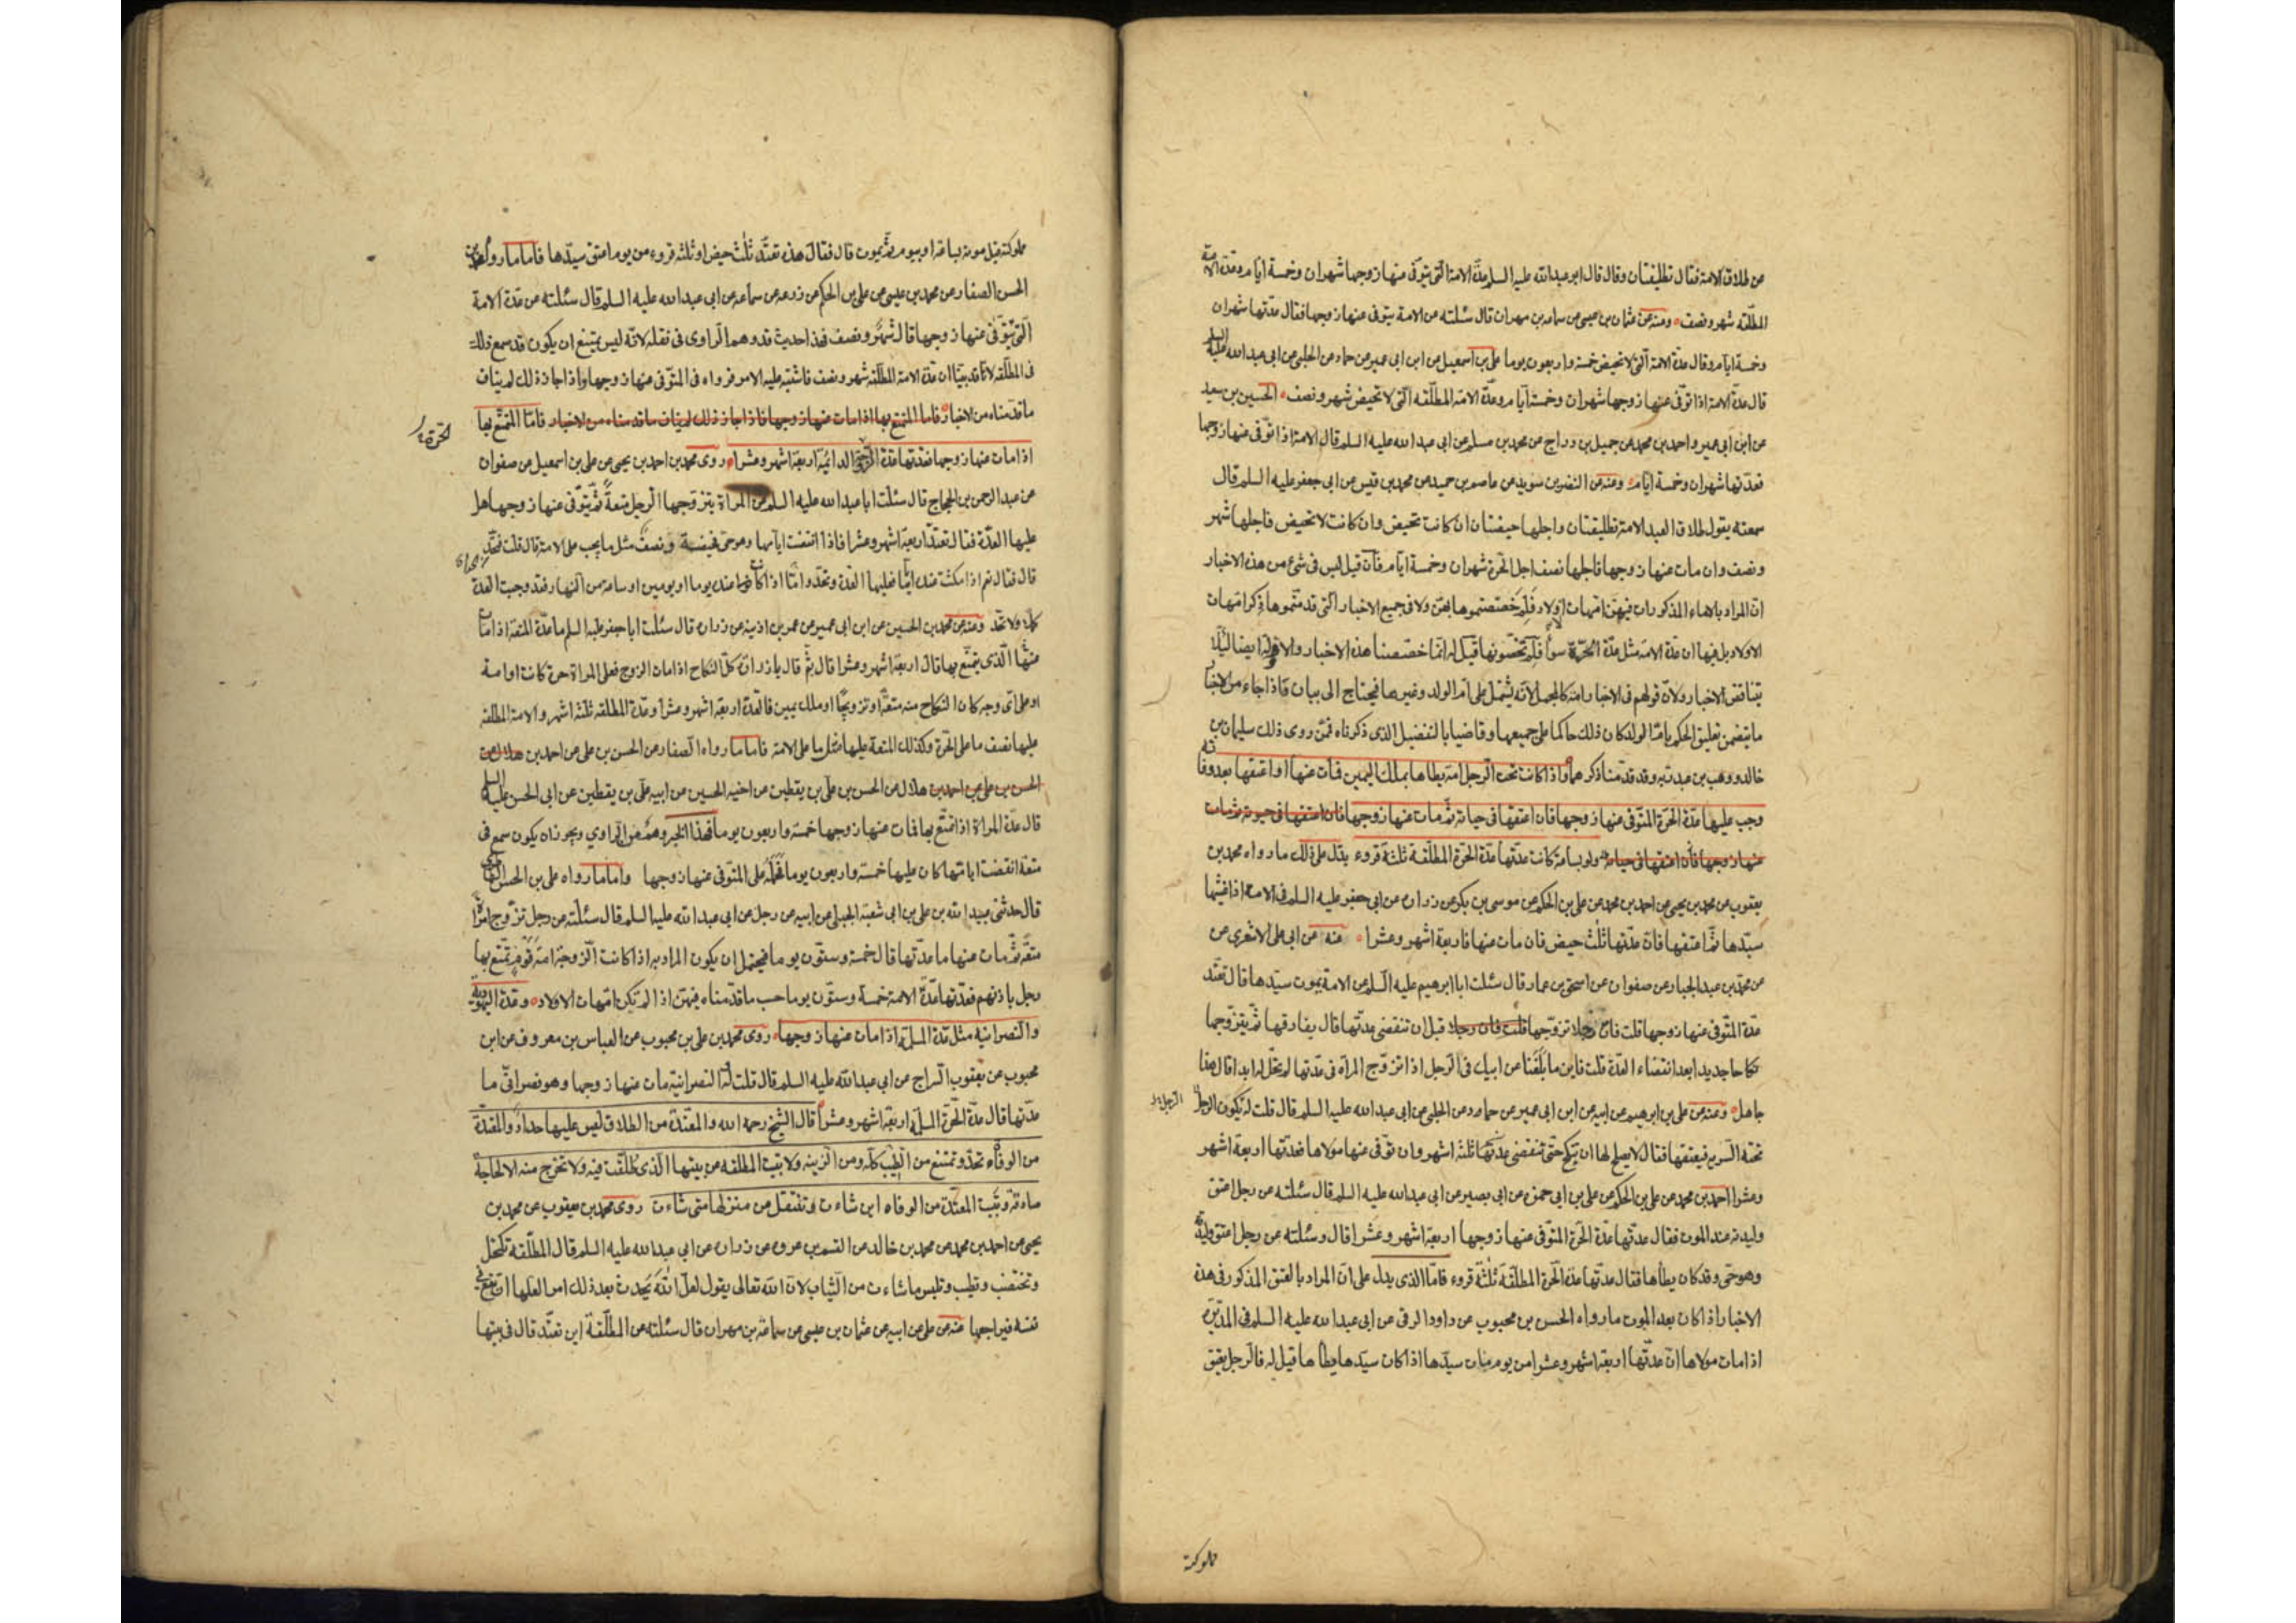 عن طلاق الامة فقال تطليقتان وقال قال ابو عبد الله عليه السلم عدّة الامة الّتى يتوفّى عنها زوجها شهران وخمسة ايّام وعدّة الامة
المطلّقة شهر ونصف ومنه عن عثمان بن عيسى عن سماعة بن مهران قال سئلته عن الامة يتوفى عنها زوجها فقال عدّتها شهران
وخمسة ايام وقال عدّة الامة الّتى لا تحيض خمسة واربعون يوما على بن اسمعيل عن ابن ابى عمير عن حماد عن الحلبى عن ابى عبد الله عليه السلم
قال عدّة الامة اذا توفّى عنها زوجها شهران وخمسة ايّام وعدّة الامة المطلّقة الّتى لا تحيض شهر ونصف الحسين بن سعيد
عن ابن ابى عمير واحمد بن محمد عن جميل بن دراج عن محمد بن مسلم عن ابى عبد الله عليه السلم قال الامة اذا توفّى عنها زوجها
فعدّتها شهران وخمسة ايّام وعنه عن النضر بن سويد عن عاصم بن حميد عن محمد بن قيس عن ابى جعفر عليه السلم قال
سمعته يقول طلاق العبد الامة تطليقتان واجلها حيضتان ان كانت تحيض وان كانت لا تحيض فاجلها شهر
ونصف وان مات عنها زوجها فاجلها نصف اجل الحرّة شهران وخمسة ايّام فان قيل ليس فى شئ من هذه الاخبار
انّ المراد بالاماء المذكورات فيهنّ امّهات الاولاد فلم خصّصتموها بهنّ ولا فى جميع الاخبار الّتى قدمتموها ذكر امّهات
الاولاد بل فيها ان عدّة الامة مثل عدّة الحرّة سواء فلم تخصّونها قيل له انّما خصّصنا هذه الاخبار والاولة ايضا لئلّا
يتناقض الاخبار ولانّ قولهم فى الاخبار امة كالمجمل لانّه يشتمل على امّ الولد وغيرها فيحتاج الى بيان فاذا جاء من الاخبار
ما يتضمن تعليق الحكم بامّ الولد كان ذلك حاكما على جميعها وقاضيا بالتفضيل الذى ذكرناه فمن روى ذلك سليمان بن
خالد ووهب بن عبد ربه وقد قدّمنا ذكرهما واذا كانت تحت الرّجل امة يطاها بملك اليمين فمات عنها او اعتقها بعد وفاته
وجب عليها عدّة الحرّة المتوّفى عنها زوجها فان اعتقها فى حياته ثم مات عنها زوجها فان اعتقها فى حيوته ثم مات
عنها زوجها فان اعتقها فى حياته ولو بساعة كانت عدّتها عدّة الحرّة المطلّقة ثلثة قروء يدّل على ذلك ما رواه محمد بن
يعقوب عن محمد بن يحيى عن احمد بن محمد عن على بن الحكم عن موسى بن بكر عن زرارة عن ابى جعفر عليه السلم فى الامة اذا غشيها
سيّدها ثمّ اعتقها فان عدّتها ثلث حيض فان مات عنها فاربعة اشهر وعشرا عنه عن ابى على الاشعرى عن
عن محمّد بن عبد الجبار عن صفوان عن اسحق بن عمار قال سئلت ابا ابرهيم عليه السلم عن الامة يموت سيّدها قال تعتد
عدّة المتوّفى عنها زوجها قلت فان رجلا تزوّجها قلت فان رجلا قبل ان تنقضى عدّتها قال يفارقها ثمّ يتزوجها
نكاحا جديدا بعد انقضاء العدّة قلت فاين ما بلغنا عن ابيك فى الرّجل اذا تزوّج المراة فى عدّتها لم تحلّ له ابدا قال هذا
جاهل وعنه عن على بن ابرهيم عن ابيه عن ابن ابى عمير عن حماد عن الحلبى عن ابى عبد الله عليه السلم قال قلت له يكون الرجل
الرّجل
تحته السريه فيعتقها فقال لا يصلح لها ان تنكح حتّى تنقضى عدّتها ثلثة اشهر وان توفى عنها مولاها فعدّتها اربعة اشهر
وعشرا احمد بن محمد عن على بن الحكم عن على بن ابى حمزة عن ابى بصير عن ابى عبد الله عليه السلم قال سئلته عن رجل اعتق
وليدته عند الموت فقال عدتها عدّة الحرّة المتوّفى عنها زوجها اربعة اشهر وعشرا قال وسئلته عن رجل اعتق وليدته
وهو حىّ وقد كان يطأها فقال عدّتها عدّة الحرّة المطلّقة ثلثة قروء فامّا الذى يدل على انّ المراد بالعتق المذكور فى هذه
الاخبار اذا كان بعد الموت ما رواه الحسن بن محبوب عن داود الرقى عن ابى عبد الله عليه السلم فى المدبّرة
اذا مات مولاها انّ عدّتها اربعة اشهر وعشرا من يوم مات سيدّها اذا كان سيّدها يطأها قيل له فالرّجل يعتق
مملوكته
مملوكته قبل موته بساعة او بيوم ثمّ يموت قال فقال هذه تعتدّ ثلث حيض او ثلثه قروء من يوم اعتق سيّدها فاما ما رواه محمد بن
الحسن الصفار عن محمد بن عيسى عن على بن الحكم عن زرعه عن سماعه عن ابى عبد الله عليه السلم قال سئلته عن عدة الامة
الّتى يتوفّى عنها زوجها قال شهر ونصف فهذا حديث قد وهم الراوى فى نقله لانّه ليس يمتنع ان يكون قد سمع ذلك
فى المطلّقه لانّا قد بيّنا ان عدّة الامة المطلّقه شهر ونصف فاشتبه عليه الامر فرواه فى المتوّفى عنها زوجها واذا جاز ذلك لم يناف
ما قدّمناه من الاخبار فاما المتمتع بها اذا مات عنها زوجها فاذا جاز ذلك لم يناف ما قدمناه من الاخبار فامّا المتمتّع بها
اذا مات عنها زوجها فعدّتها عدّة الدائمة اربعة اشهر وعشرا روى محمد بن احمد بن يحيى عن على بن اسمعيل عن صفوان
عن عبد الرحمن بن الحجاج قال سئلت ابا عبد الله عليه السلم عن المراة يتزوّجها الرجل متعةً ثمّ يتوفّى عنها زوجها هل
عليها العدّة فقال تعتدّ اربعة اشهر وعشرا فاذا انقضت ايامها وهو حىّ فحيضة ونصف مثل ما يجب على الامة قال قلت فتحدّ
قال فقال نعم اذا مكثت عنده ايّاما فعليها العدة وتحدّ وامّا اذا كانت عنده يوما او يومين او ساعة من النّهار فقد وجبت العدة
كملا ولا تحدّ وعنه عن محمد بن الحسين عن ابن ابى عمير عن عمر بن اذينه عن زرارة قال سئلت ابا جعفر عليه السلم ما عدّة المتعة اذا مات
عنها الّذى يتمتّع بها قال اربعة اشهر وعشرا قال ثمّ قال يا زرارة كلّ النكاح اذا مات الزوج فعلى المراة حرة كانت او امة
او على اىّ وجه كان النكاح منه متعة او تزويجًا او ملك يمين فالعدّة اربعة اشهر وعشرا وعدّة المطلقه ثلثة اشهر والامة المطلقه
عليها نصف ما على الحرّة وكذلك المتعة عليها مثل ما على الامة فاما ما رواه الصفار عن الحسن بن على عن احمد بن هلال عن
الحسن بن على عن احمد بن هلال عن الحسن بن على بن يقطين عن اخيه الحسين عن ابيه على بن يقطين عن ابى الحسن عليه السلم
قال عدّة المراة اذا تمتّع بها فمات عنها زوجها خمسة واربعون يوما فهذا الخبر وهم من الراوي ويجوز ان يكون سمع فى
متعة انقضت ايامها كان عليها خمسة واربعون يوما فحمله على المتوفى عنها زوجها وامّا ما رواه على بن الحسن الطاطرى
قال حدثنى عبيد الله بن على بن ابى شعبة الحلبى عن ابيه عن رجل عن ابى عبد الله عليه السلم قال سئلته عن رجل تزوّج امراة
متعة ثمّ مات عنها ما عدّتها قال خمسة وستّون يوما فيحتمل ان يكون المراد به اذا كانت الزوجة امة قوم يتمتّع بها
رجل باذنهم فعدّتها عدّة الامة خمسة وستّون يوما حسب ما قدّمناه فيهنّ اذا لم تكن امّهات الاولاد وعدّة اليهوديّة
والنصرانيه مثل عدّة المسلمة اذا مات عنها زوجها روى محمد بن على بن محبوب عن العباس بن معروف عن ابن
محبوب عن يعقوب السراج عن ابى عبد الله عليه السلم قال قلت له النصرانية مات عنها زوجها وهو نصرانىّ ما
عدّتها قال عدّة الحرّة المسلمة اربعة اشهر وعشرا قال الشيخ رحمه الله والمعتدّة من الطلاق ليس عليها حداد والمعتدّة
من الوفاة تحدّ وتمتنع من الطّيب كلّه ومن الزينه ولا تبيت المطلقه عن بيتها الّذى طلّقت فيه ولا تخرج منه الا لحاجة
صادقة وتبيت المعتدّة من الوفاه اين شاءت وتنتقل من منزلها متى شاءت روى محمد بن يعقوب عن محمد بن
يحيى عن احمد بن محمد عن محمد بن خالد عن القسم بن عروه عن زرارة عن ابى عبد الله عليه السلم قال المطلّقة تكتحل
وتختضب وتطيب وتلبس ما شاءت من الثّياب لانّ الله تعالى يقول لعلّ الله يحدث بعد ذلك امرا لعلّها ان تقع فى
نفسه فيراجعها عنه عن على عن ابيه عن عثمان بن عيسى عن سماعة بن مهران قال سئلته عن المطلّقة اين تعتدّ قال فى بيتها